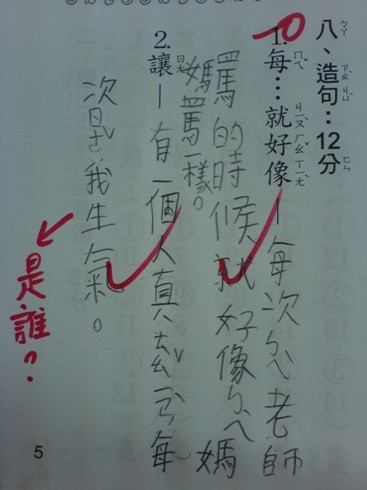 八、造句：12分
1.每…就好像—每次ㄅㄟˋ老師
罵的時候就好像ㄅㄟˋ媽
媽罵一樣。
2.讓—有一個人真ㄊㄠˇ每
次ㄖㄤˋ我生氣。
是誰？
5